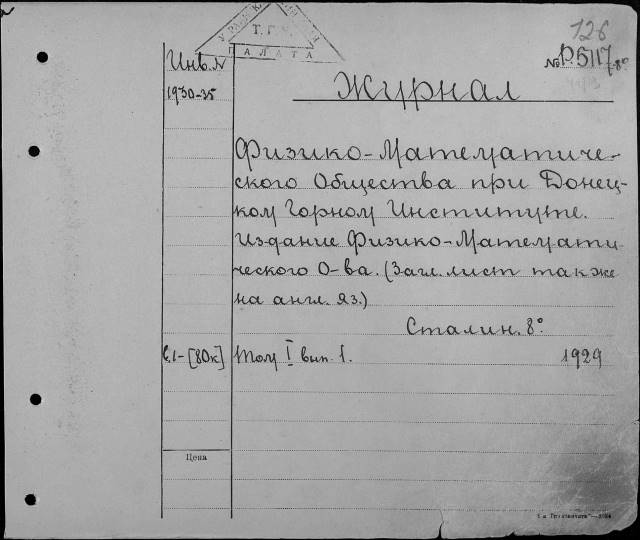 126
Т. Г.
ПАЛАТА
Инв. N
№ Р 5117/8°
1930-35
Журнал
Физико-Математиче-
ского Общества при Донец-
ком Горном Институте.
Издание Физико-Математи-
ческого О-ва. (Загл. лист также
на англ. яз.)
Сталин. 8°
1- [80к] Том I вып. 1. 1929
Цена